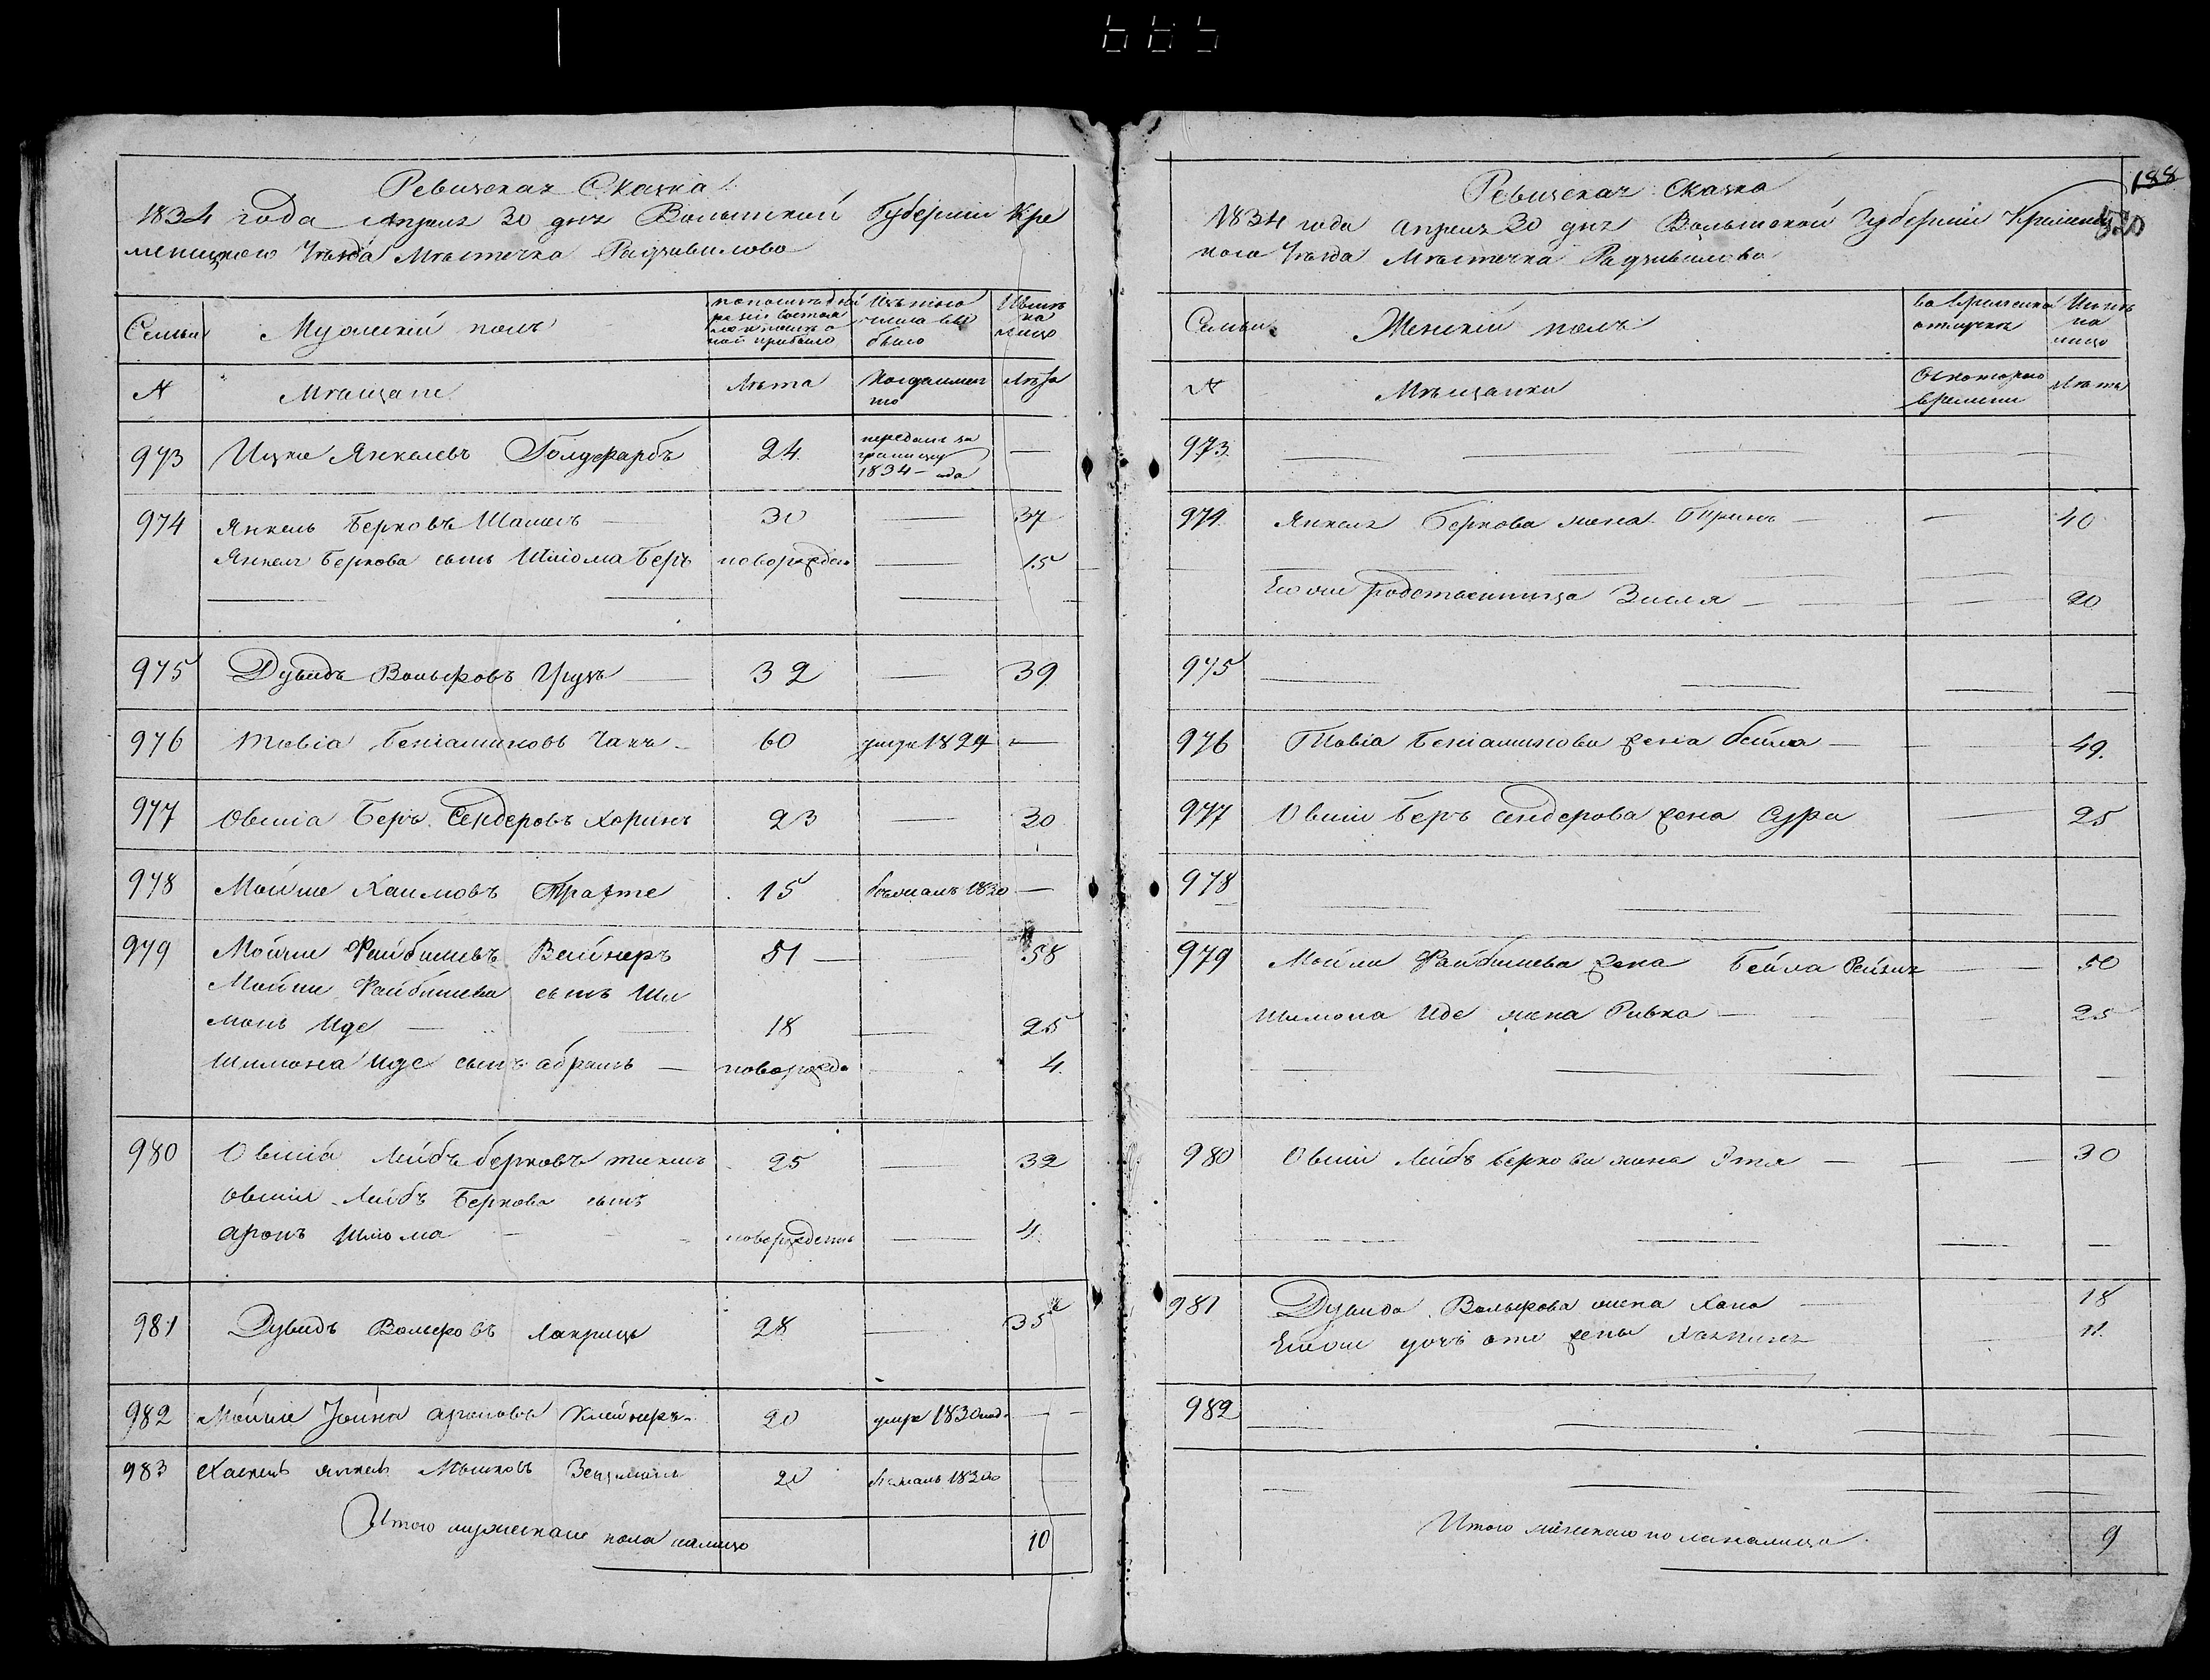 Ревизская Сказка
1834 года Апреля 30 дня Волынской Губернии Кре
менецкого Уѣзда Мѣстечка Радзивилова
Семьи
Мужескій полъ
Изъ того числа выбыло
Нынѣ на лицо
№
Мѣщане
Лѣта
Когда именно
Лѣта
973 Ицко Янкелевъ Голдфарбъ 24 переданъ за границу 1834 года —
974 Янкель Берковъ 30 — 37
Янкеля Беркова сынъ Шлiома Беръ новорожден — 15
975 Дувидъ Вольфовъ 32 — 39
976 Тивіа Беніаминовъ 60 умре 1824 —
977 Овшіа Беръ Сендеровъ Хоринъ 23 — 30
978 Мойше Хаимовъ 15 бѣжалъ 1830 —
979 Мойше Файбишевъ Вейнеръ 51 — 58
Мойше Файбишева сынъ Ши
монъ Иде — 18 — 25
Шимона Иде сынъ Абрамъ — новорожд 4
980 Овшіа Лейбъ Берковъ 25 — 32
Овшія Лейбъ Беркова сынъ
Аронъ Шліома новорожденъ — 4
981 Дувидъ Вольфовъ Лакрицъ 28 — 35
982 Мойше Іойна Ароновъ Клейнеръ 20 умре 1830 год —
983 Хаскель Янкель Мошковъ Вецманъ 20 бѣжалъ 1830
Итого мужескаго пола налицо 10
188
520
Ревизская Сказка
1834 года Апреля 30 дня Волынской Губерніи Кременец
кого Уѣзда Мѣстечка Радзивилова
Семьи
Женскій полъ
Во временной отлучкѣ
Нынѣ на лицо
№
Мѣщанки
Съ котораго времени
Лѣта
973 — — —
974 Янкеля Беркова жена — — 40
Его же родственница Зисля — — 20
975 — — — —
976 Тивіа Беніаминова жена Бейла — — 49
977 Овшіи Беръ Сендерова жена Сура — 25
978 — — — —
979 Мойши Файбишева жена Бейла Рейзя — 50
Шимона Иде жена Ривка — 25
— — — —
980 Овшіи Лейбъ Беркова жена Этя — — 30
— — — —
981 Дувида Вольфова жена Хана — 18
Его же дочь отъ жены 11
982 — — —
— — —
Итого женскаго пола налицо 9